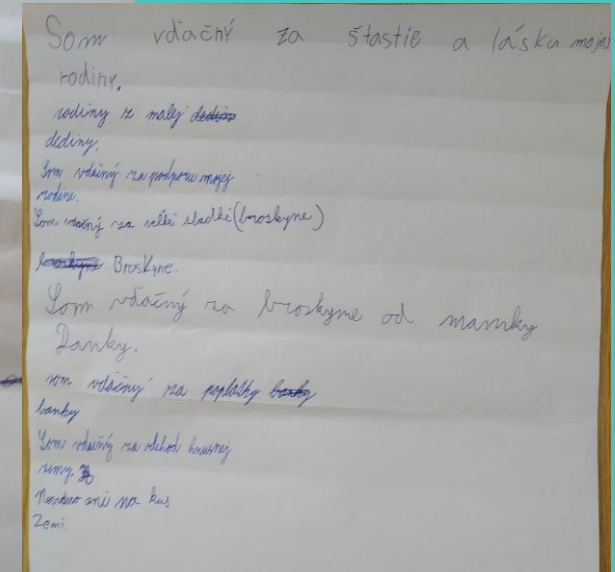 Som vďačný za štastie a lásku mojej
rodiny.
rodiny z malej
dediny.
Som vďačný za podporu mojej
rodine.
Som vďačný za velké sladké (broskyne)
Broskyne.
Som vďačný za broskyne od mamky
Danky.
som vďáčný za poplatky banky
banky
Som vďačný za odchod hnusnej
zimy.
ani na kus
Zemi.